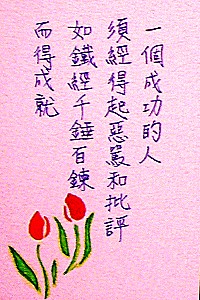 一個成功的人
須經得起惡罵和批評
如鐵經千錘百鍊
而得成就